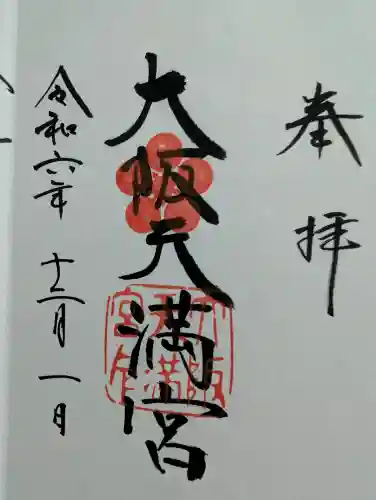 奉拝
大阪天満宮
令和六年十二月一日